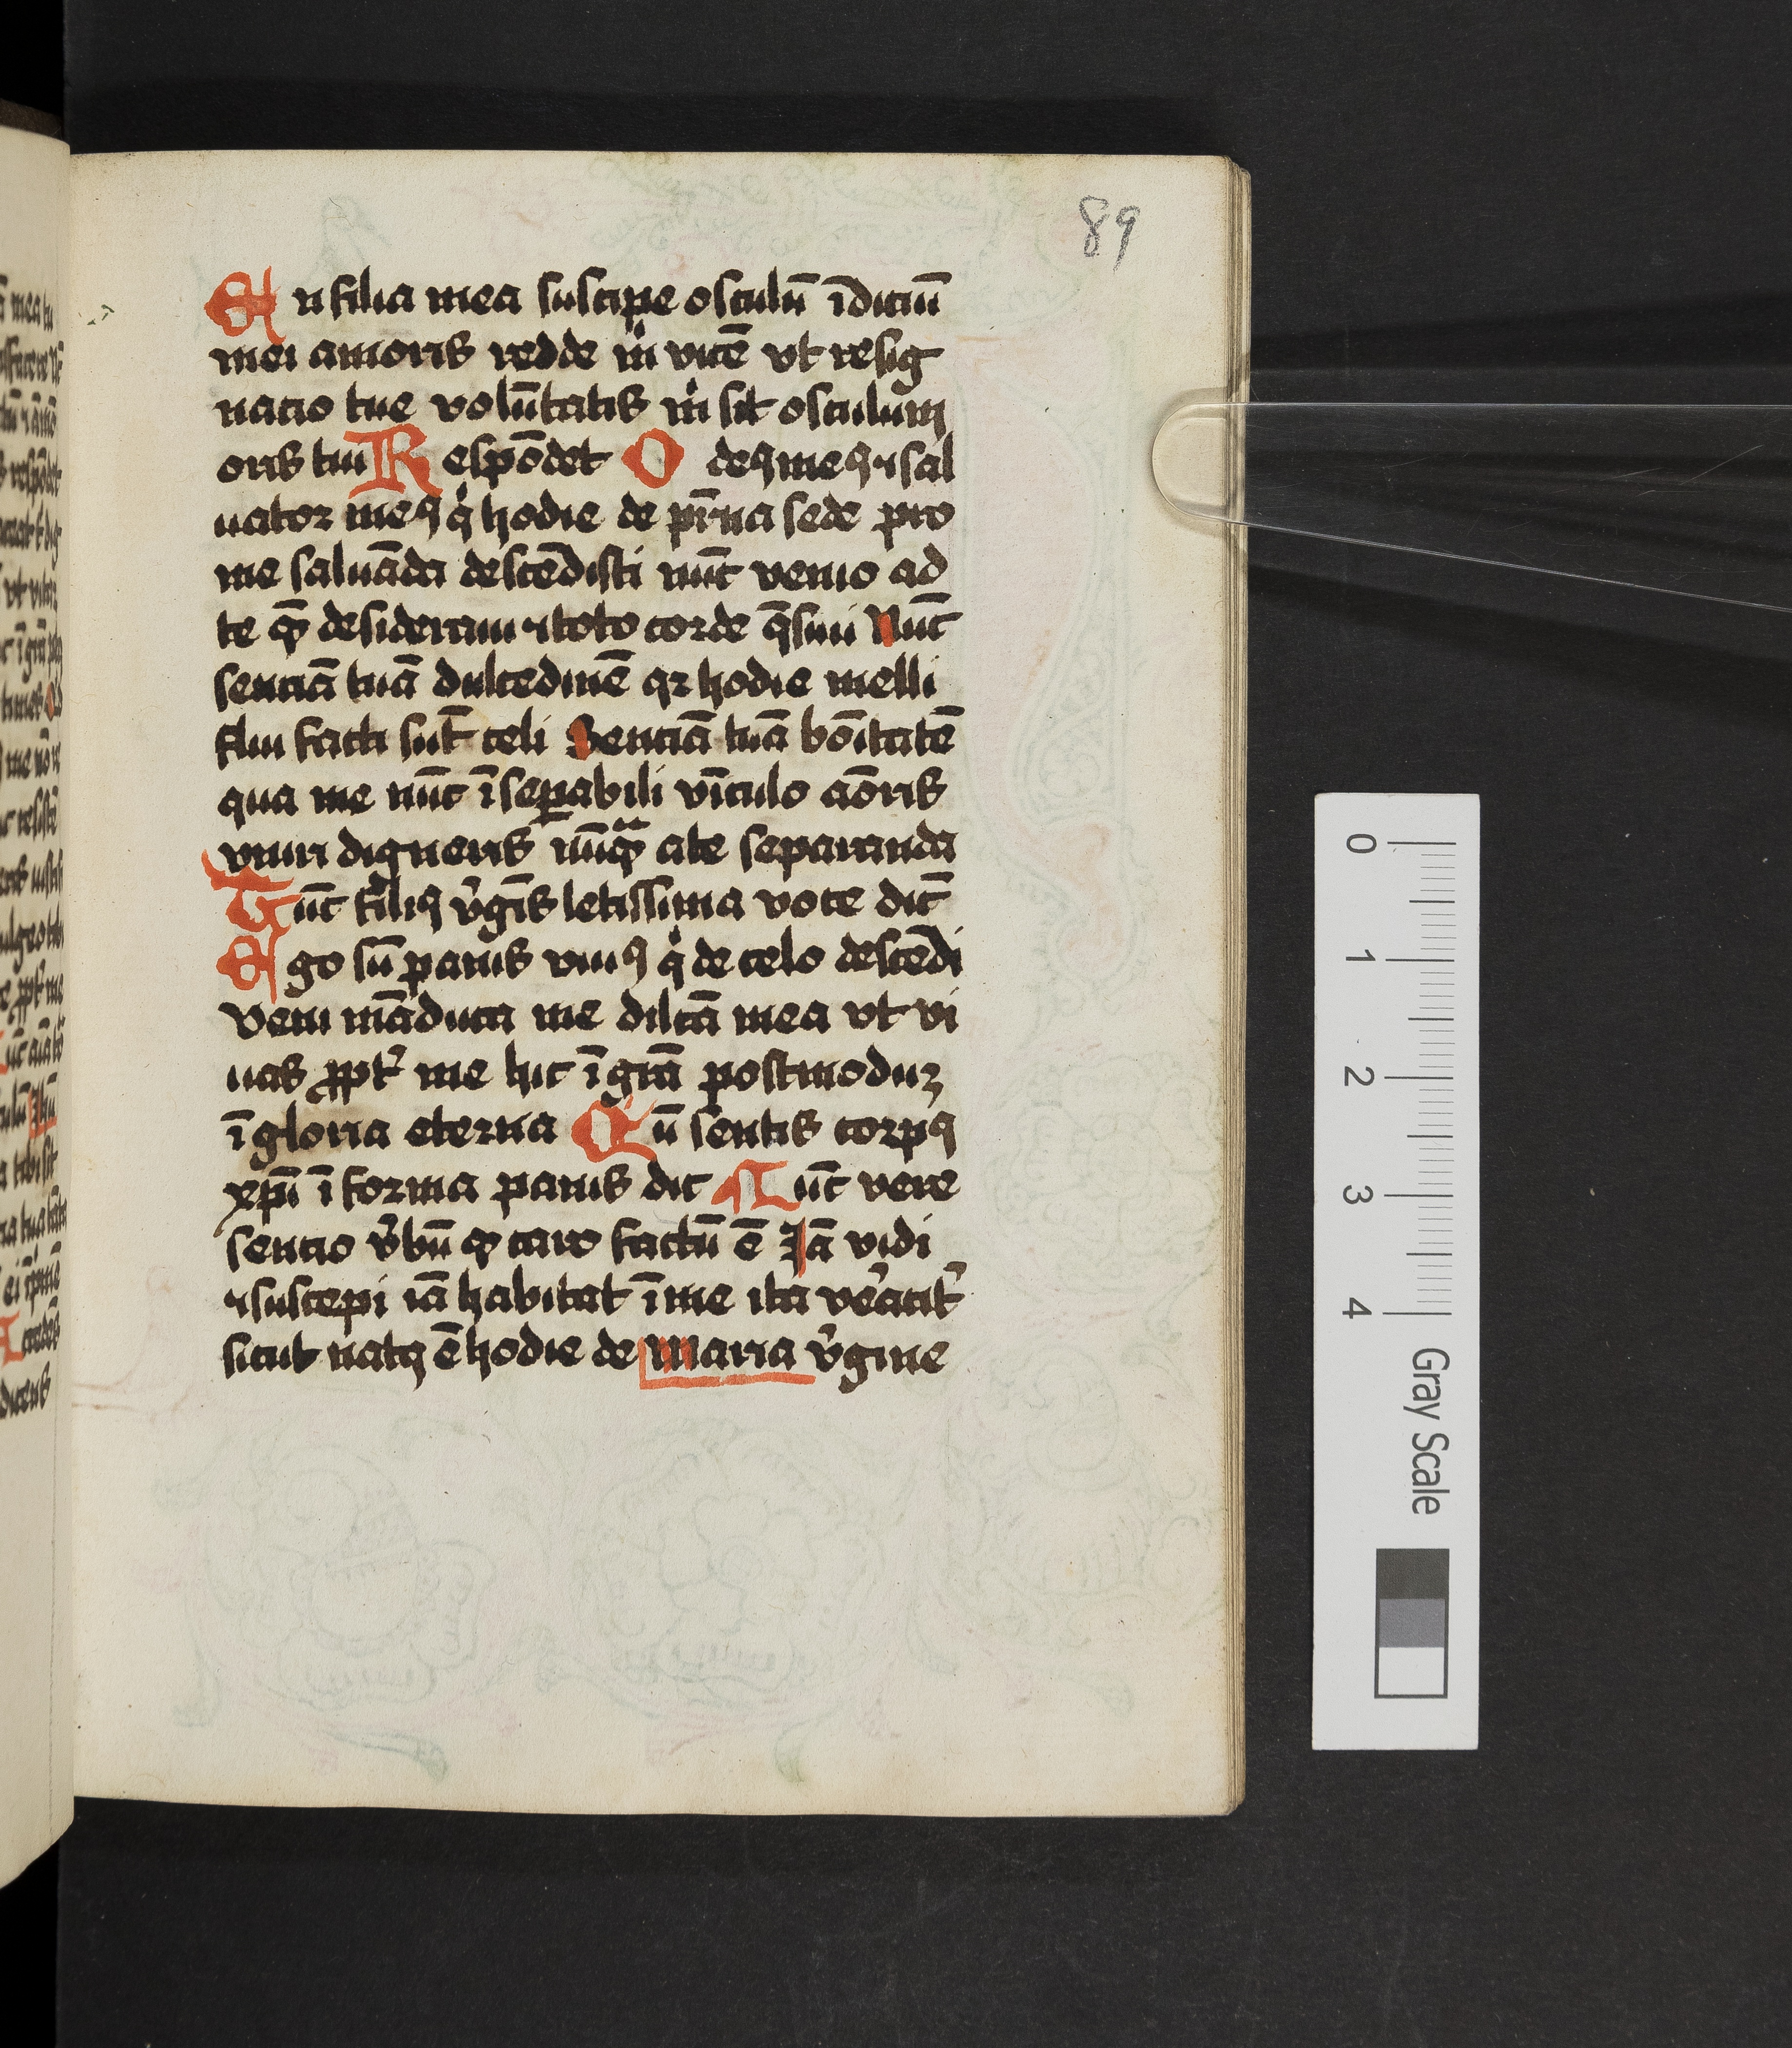 89
En filia mea suscipe osculū īdiciū
mei amoris redde mͥ vicē vt resig
nacio tue volūtatis mͥ sit osculum
oris tui Respōdet O deꝯ meꝯ ⁊ sal
uator meꝯ qͥ hodie de pr̄na sede pro
me saluāda descēdisti nūc venio ad
te qm̄ desideraui ⁊ toto corde q̄siui Nūc
senciā tuā dulcedinē qꝛ hodie melli
flui facti sūt celi Senciā tuā bōitatē
qua me nūc īseꝑabili vīculo aōris
vniri digneris nūqᵃꝫ ate separanda
Tūc filiꝯ v̾gīs letissima voce dic̄
Ego sū panis viuꝯ qͥ de celo descēdi
Veni māduca me dilcā mea vt vi
uas ꝓpt̾ me hic ī grā postmoduꝫ
ī gloria eterna Cū sentis corpꝯ
xpi̅ ī forma panis dic Nūc vere
sencio v̾bū qꝫ caro factū ē Iā vidi
⁊ suscepi iā habitat ī me ita v̾eacit̾
sicut natꝯ ē hodie de Maria v̾gine
0
1
2
3
4
Gray Scale